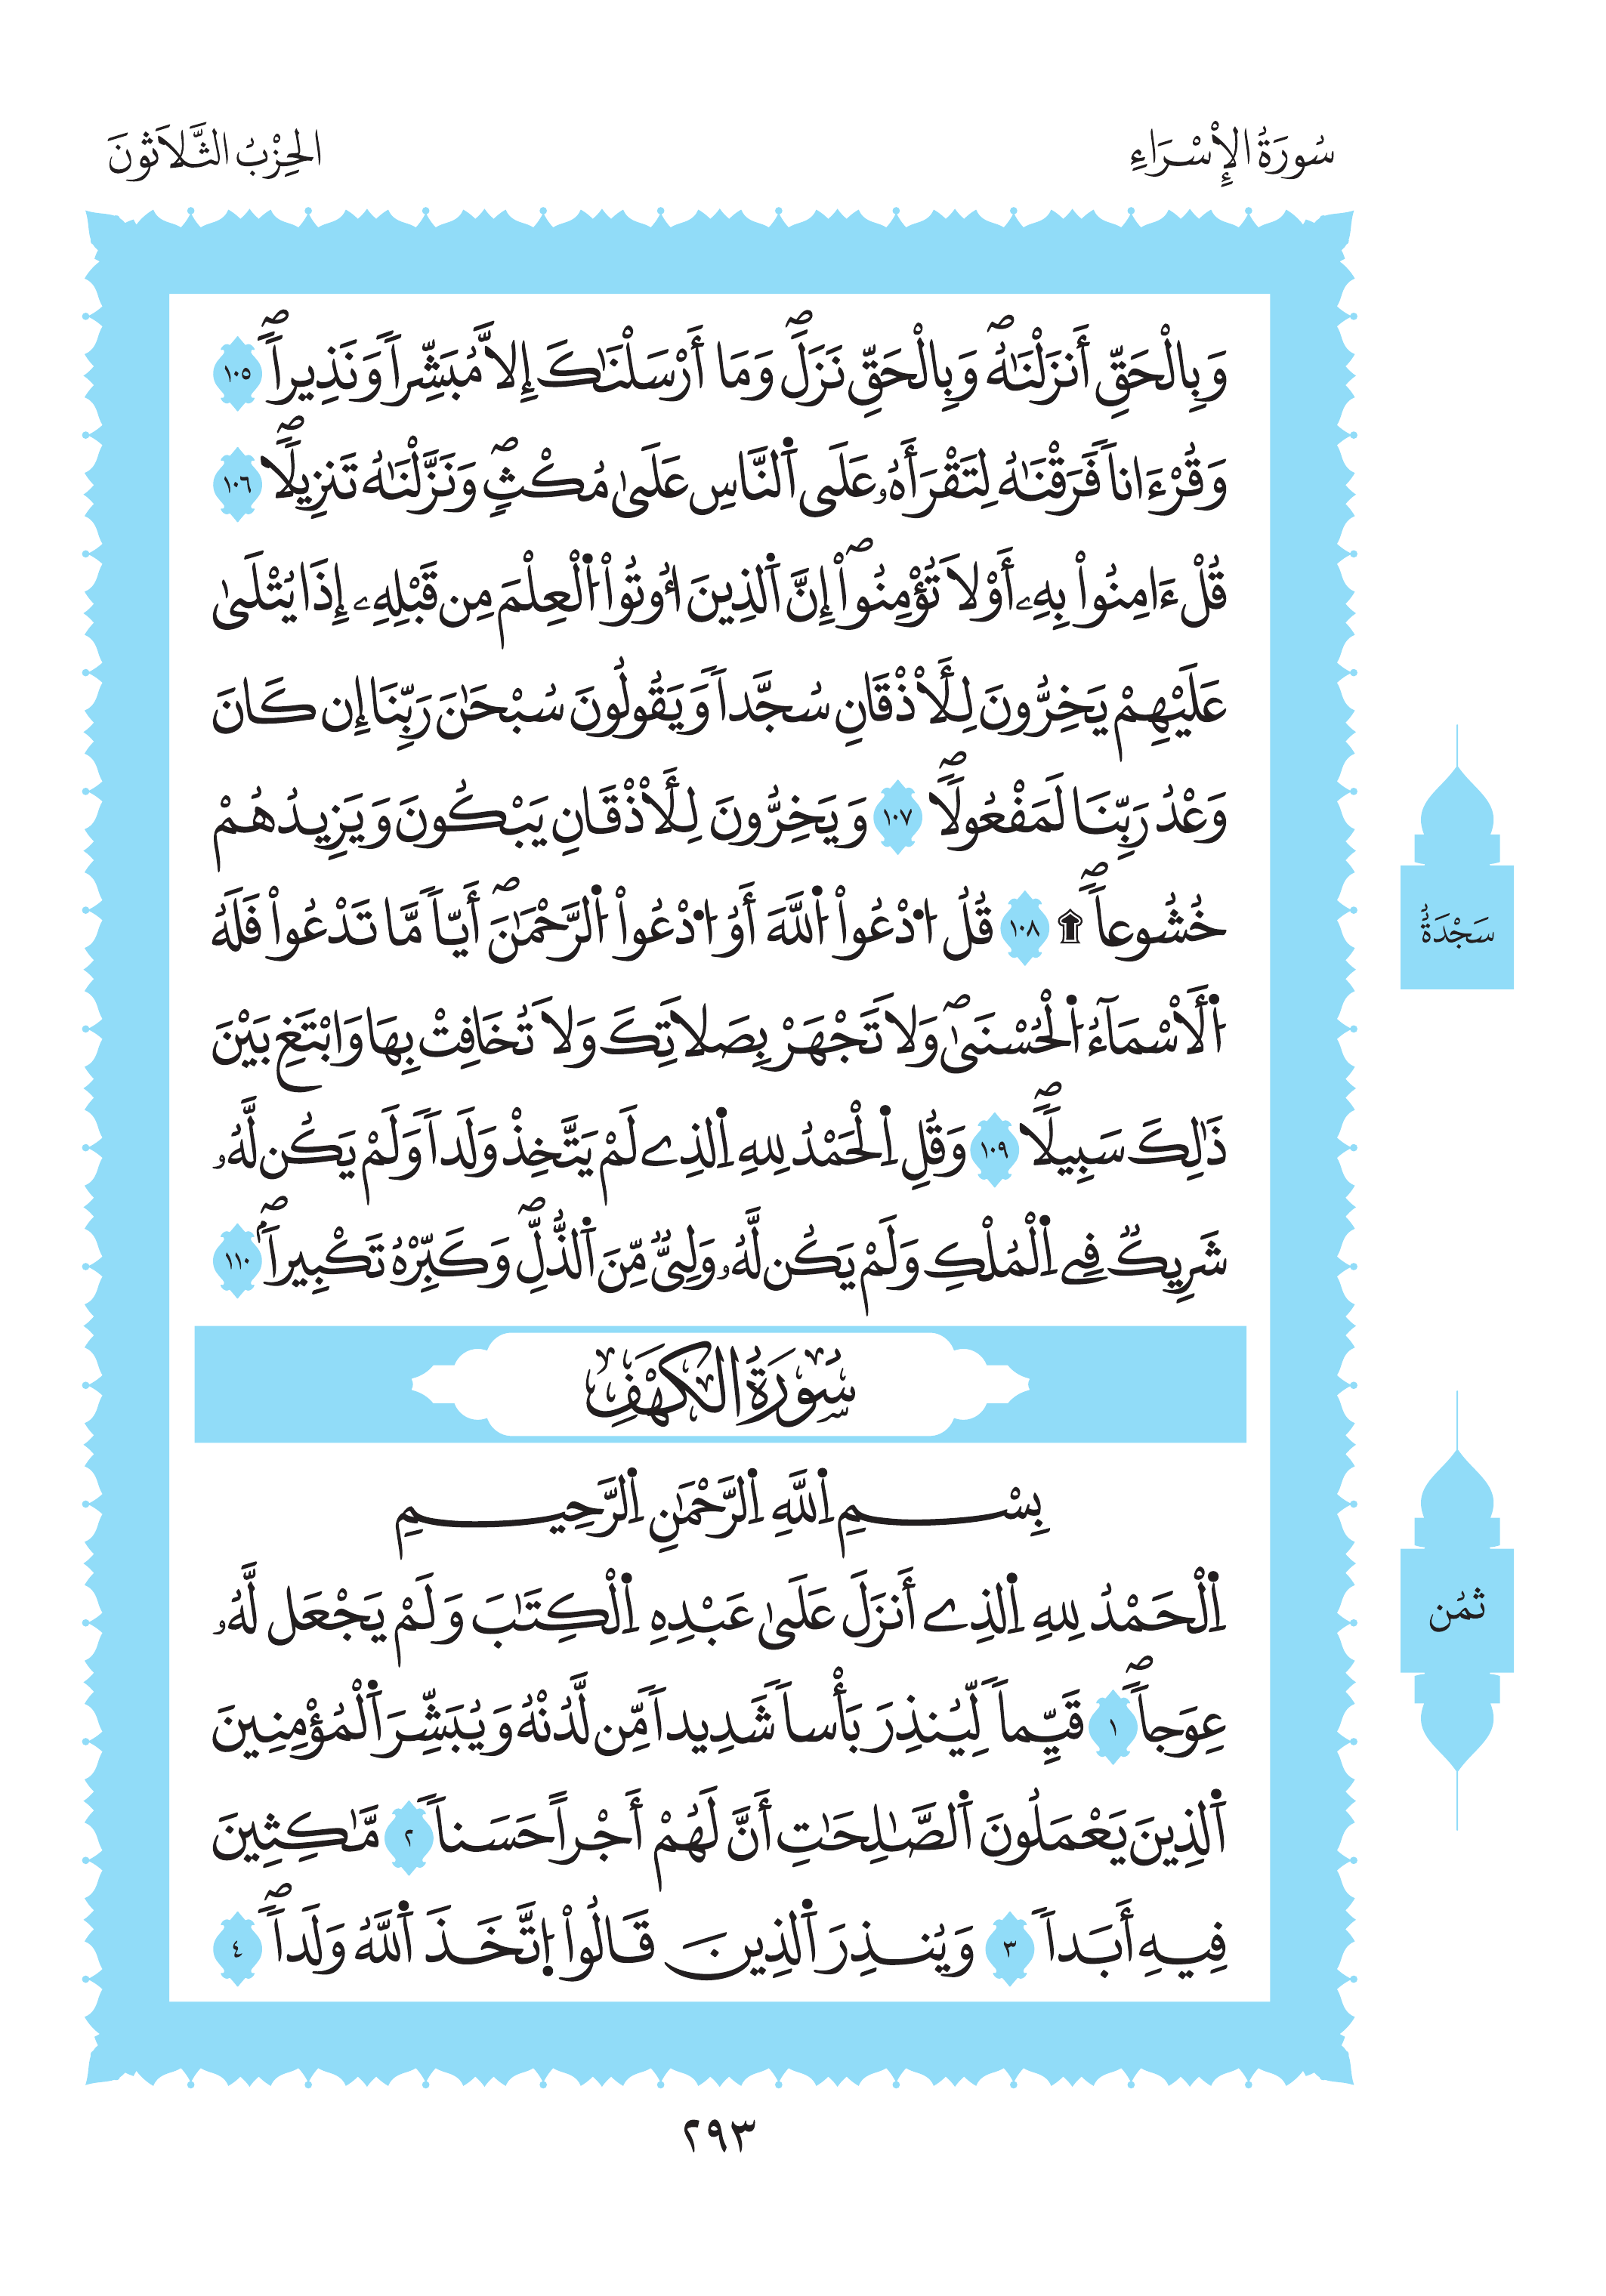 سُورَةُ الإِسْرَاءِ
الحِزْبُ الثَّلَاثُونَ
وَبِالْحَقِّ أَنزَلْنَٰهُۖ وَبِالْحَقِّ نَزَلَۖ وَمَا أَرْسَلْنَٰكَ إِلاَّ مُبَشِّراٗ وَنَذِيراٗۖ ١٠٥
وَقُرْءَاناٗ فَرَقْنَٰهُ لِتَقْرَأَهُۥ عَلَى اَ۬لنَّاسِ عَلَىٰ مُكْثٖۖ وَنَزَّلْنَٰهُ تَنزِيلاٗۖ ١٠٦
قُلْ ءَامِنُواْ بِهِۦ أَوْ لَا تُؤْمِنُواْۖ إِنَّ اَ۬لذِينَ أُوتُواْ اُ۬لْعِلْمَ مِن قَبْلِهِۦ إِذَا يُتْلَىٰ
عَلَيْهِمْ يَخِرُّونَ لِلَأْذْقَانِ سُجَّداٗ وَيَقُولُونَ سُبْحَٰنَ رَبِّنَا إِن كَانَ
وَعْدُ رَبِّنَا لَمَفْعُولاٗۖ ١٠٧ وَيَخِرُّونَ لِلَأْذْقَانِ يَبْكُونَ وَيَزِيدُهُمْ
خُشُوعاٗۖ ۩ ١٠٨ قُلُ اُ۟دْعُواْ اُ۬للَّهَ أَوُ اُ۟دْعُواْ اُ۬لرَّحْمَٰنَۖ أَيّاٗ مَّا تَدْعُواْ فَلَهُ
اُ۬لَأْسْمَآءُ اُ۬لْحُسْنَىٰۖ وَلَا تَجْهَرْ بِصَلَاتِكَ وَلَا تُخَافِتْ بِهَا وَابْتَغِ بَيْنَ
ذَٰلِكَ سَبِيلاٗۖ ١٠٩ وَقُلِ اِ۬لْحَمْدُ لِلهِ اِ۬لذِے لَمْ يَتَّخِذْ وَلَداٗ وَلَمْ يَكُن لَّهُۥ
شَرِيكٞ فِے اِ۬لْمُلْكِ وَلَمْ يَكُن لَّهُۥ وَلِيّٞ مِّنَ اَ۬لذُّلِّۖ وَكَبِّرْهُ تَكْبِيراٗۖ ١١٠
سُورَةُ الكَهْفِ
بِسْمِ اِ۬للَّهِ اِ۬لرَّحْمَٰنِ اِ۬لرَّحِيمِ
اِ۬لْحَمْدُ لِلهِ اِ۬لذِے أَنزَلَ عَلَىٰ عَبْدِهِ اِ۬لْكِتَٰبَ وَلَمْ يَجْعَل لَّهُۥ
عِوَجاٗۖ ١ قَيِّماٗ لِّيُنذِرَ بَأْساٗ شَدِيداٗ مِّن لَّدُنْهُ وَيُبَشِّرَ اَ۬لْمُؤْمِنِينَ
اَ۬لذِينَ يَعْمَلُونَ اَ۬لصَّٰلِحَٰتِ أَنَّ لَهُمْ أَجْراً حَسَناٗ ٢ مَّٰكِثِينَ
فِيهِ أَبَداٗ ٣ وَيُنذِرَ اَ۬لذِينَ قَالُواْ اُ۪تَّخَذَ اَ۬للَّهُ وَلَداٗۖ ٤
سَجْدَةٌ
ثُمُن
٢٩٣